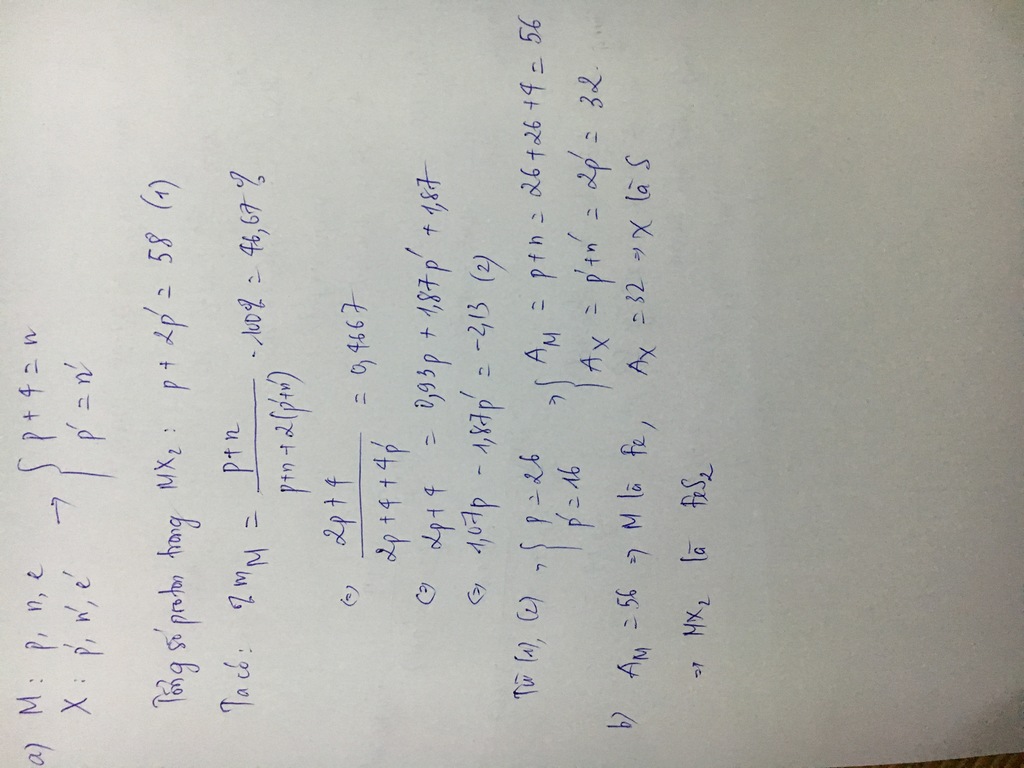 a) M : p, n, e → { p + 4 = n
X : p', n', e' { p' = n'
Tổng số proton trong MX₂ : p + 2p' = 58 (1)
Ta có : %m_M = (p+n)/(p+n+2(p'+n')) · 100% = 46,67%
(=) (2p+4)/(2p+4+4p') = 0,4667
(=) 2p+4 = 0,93p + 1,87p' + 1,87
(=) 1,07p - 1,87p' = -2,13 (2)
Từ (1), (2) → { p = 26 → { A_M = p+n = 26+26+4 = 56
{ p' = 16 { A_X = p'+n' = 2p' = 32.
b) A_M = 56 => M là Fe, A_X = 32 => X là S
=> MX₂ là FeS₂